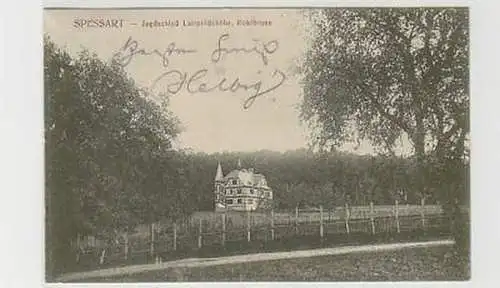 SPESSART – Jagdschloß Luitpoldshöhe, Rohrbrunn
Besten Gruß
Helbig